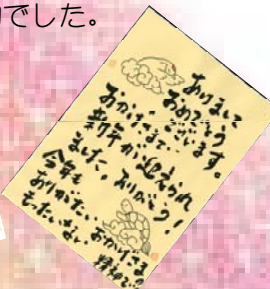 でした。
あけまして
おめでとう
ございます。
おかげさまで…
新年が迎えられ
ました。ありがとう!
今年も
ありがたい、おかげさま
もったいない、精神で!!